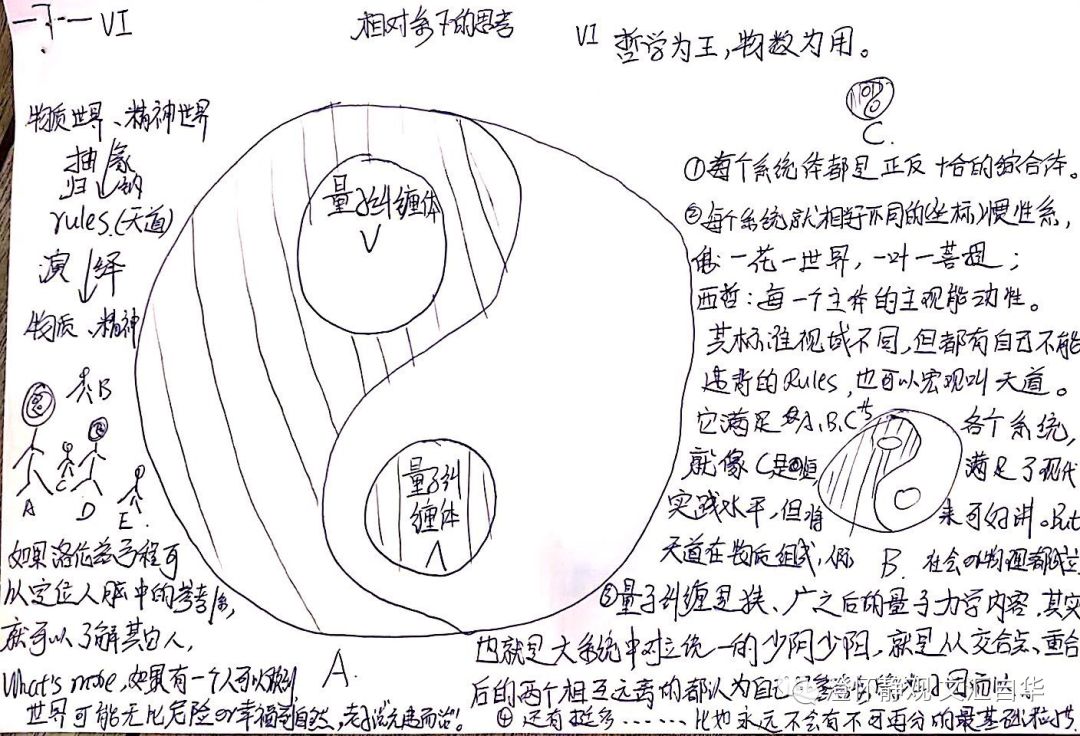 VI
相对系下的思考
VI 哲学为王，物数为用。
物质世界、精神世界
抽象
归纳
rules.(天道)
演绎
物质、精神
B
A
C
D
E.
如果洛伦兹方程可
以定位人脑中的参考系，
就可以了解其它人，
What's more，如果有一个人可以做到，
世界可能无比危险or幸福
量子纠缠体
V
量子纠
缠体
Λ
A.
C.
①每个系统体都是正反合的综合体。
②每个系统就相好不同的坐标惯性系，
佛：一花一世界，一叶一菩提；
西哲：每一个主体的主观能动性。
其标准视域不同，但都有自己不能
违背的Rules，也可以宏观叫天道。
它满足A、B、C 各个系统，
就像C是 满足了现代
实践水平，但将来可好讲。But
天道在 B.
③量子纠缠是 广之后的量子力学内容，其实
也就是大系统中对立统一的少阴少阳，就是从交合点、重合
后的两个相互元素的都认为自己
④还有挺多……比如永远不会有不可再分的最基础粒
澄怀静观 文汇白华